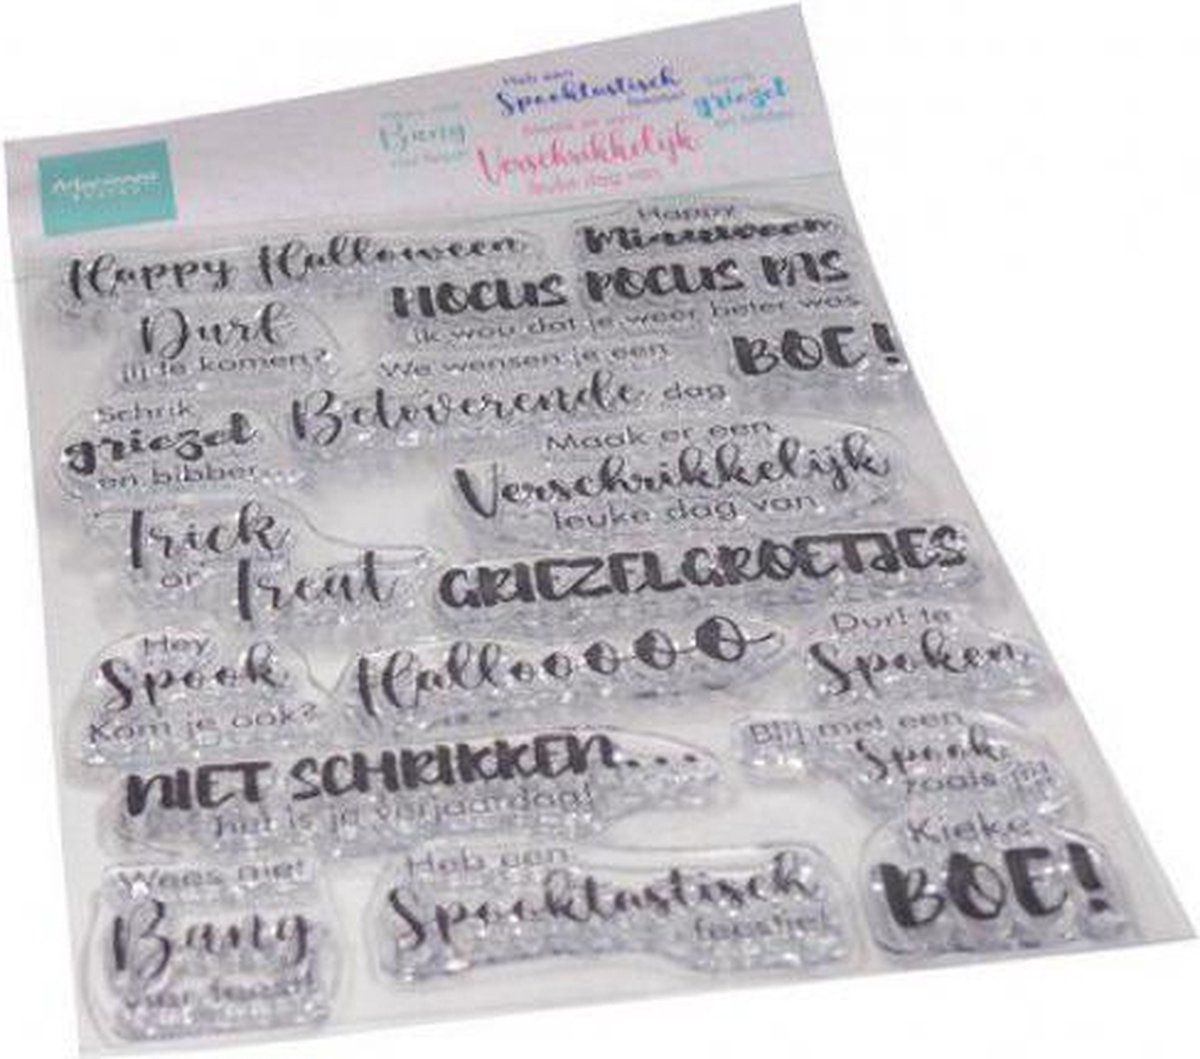 Heb een
Spooktastisch
feestje!
Bang
griezel
Verschrikkelijk
leuke dag van
Marianne
Happy Halloween
Happy
Miauween
HOCUS POCUS PAS
ik wou dat je weer beter was
Durf
jij te komen?
BOE!
We wensen je een
Betoverende dag
Schrik
griezel
en bibber...
Maak er een
Verschrikkelijk
leuke dag van
Trick
or Treat
GRIEZELGROETJES
Hey
Spook
Kom je ook?
Hallooooo
Durf te
Spoken
NIET SCHRIKKEN...
het is je verjaardag!
Blij met een
Spook
zoals jij
Wees niet
Bang
Heb een
Spooktastisch
feestje!
Kieke
BOE!